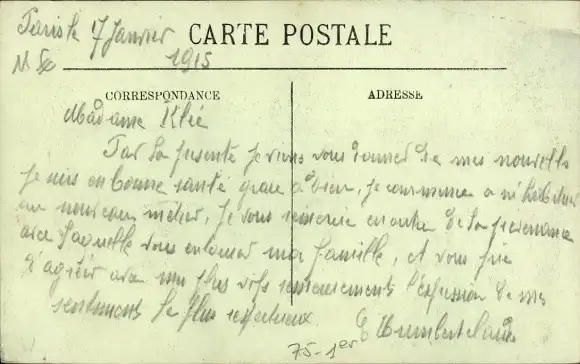 Paris le 7 Janvier
1915
CARTE POSTALE
CORRESPONDANCE
ADRESSE
Madame Klié
Par la présente je viens vous donner de mes nouvelles
je suis en bonne santé grace à Dieu, je commence a m'habituer
au nouveau métier, je vous remercie en outre de la prévenance
avec laquelle vous entourez ma famille, et vous prie
d'agréer avec mes plus vifs remerciements l'expression de mes
sentiments le plus respectueux.
75-1er